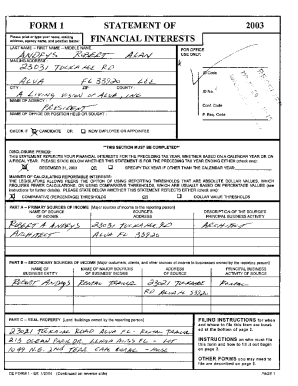 FORM 1
STATEMENT OF
FINANCIAL INTERESTS
2003
Please print or type your name, mailing
address, agency name, and position below:
LAST NAME -- FIRST NAME -- MIDDLE NAME
ANDRYS ROBERT ALAN
MAILING ADDRESS
23031 TUCKAHOE RD
ALVA FL 33920 LEE
CITY ZIP COUNTY
A LIVING VISION OF ALVA, INC
NAME OF AGENCY
PRESIDENT
NAME OF OFFICE OR POSITION HELD OR SOUGHT
CHECK IF CANDIDATE OR NEW EMPLOYEE OR APPOINTEE
FOR OFFICE
USE ONLY:
ID Code
ID No.
Conf. Code
P. Req. Code
**THIS SECTION MUST BE COMPLETED**
DISCLOSURE PERIOD:
THIS STATEMENT REFLECTS YOUR FINANCIAL INTERESTS FOR THE PRECEDING TAX YEAR, WHETHER BASED ON A CALENDAR YEAR OR ON
A FISCAL YEAR. PLEASE STATE BELOW WHETHER THIS STATEMENT IS FOR THE PRECEDING TAX YEAR ENDING EITHER (check one):
DECEMBER 31, 2003 OR SPECIFY TAX YEAR IF OTHER THAN THE CALENDAR YEAR:
MANNER OF CALCULATING REPORTABLE INTERESTS:
THE LEGISLATURE ALLOWS FILERS THE OPTION OF USING REPORTING THRESHOLDS THAT ARE ABSOLUTE DOLLAR VALUES, WHICH
REQUIRES FEWER CALCULATIONS, OR USING COMPARATIVE THRESHOLDS, WHICH ARE USUALLY BASED ON PERCENTAGE VALUES (see
instructions for further details). PLEASE STATE BELOW WHETHER THIS STATEMENT REFLECTS EITHER (check one):
COMPARATIVE (PERCENTAGE) THRESHOLDS OR DOLLAR VALUE THRESHOLDS
PART A -- PRIMARY SOURCES OF INCOME [Major sources of income to the reporting person]
NAME OF SOURCE
OF INCOME
SOURCE'S
ADDRESS
DESCRIPTION OF THE SOURCE'S
PRINCIPAL BUSINESS ACTIVITY
ROBERT A ANDRYS 23031 TUCKAHOE RD ARCHITECT
ARCHITECT ALVA FL 33920
PART B -- SECONDARY SOURCES OF INCOME [Major customers, clients, and other sources of income to businesses owned by the reporting person]
NAME OF
BUSINESS ENTITY
NAME OF MAJOR SOURCES
OF BUSINESS' INCOME
ADDRESS
OF SOURCE
PRINCIPAL BUSINESS
ACTIVITY OF SOURCE
ROBERT ANDRYS RENTAL TRAILER 23021 TUCKAHOE RENTAL
RD ALVA FL 33920
PART C -- REAL PROPERTY [Land, buildings owned by the reporting person]
23021 TUCKAHOE ROAD ALVA FL - RENTAL TRAILER
FILING INSTRUCTIONS for when
and where to file this form are located
at the bottom of page 2.
INSTRUCTIONS on who must file
this form and how to fill it out begin
on page 3.
OTHER FORMS you may need to
file are described on page 6.
CE FORM 1 (Continued on reverse side) PAGE 1